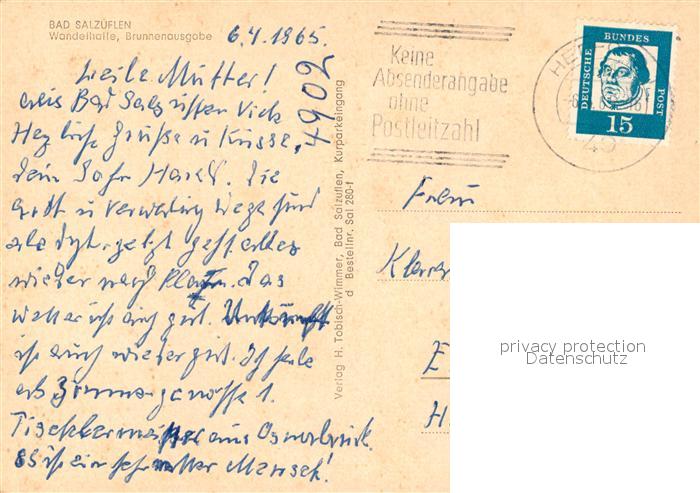 BAD SALZUFLEN
Wandelhalle, Brunnenausgabe
6.4.1965.
4902
Liebe Mutter!
aus Bad Salzuflen Viele
Herzliche Grüße u Küsse,
dein Sohn Die
Arzt u Verwaltung
alle jetzt geht alles
wieder nach Plan. Das
Wetter ist auch gut. Unterkunft
ist auch wieder gut. Ich habe
als Zimmergenosse 1.
Tischlermeister aus Osnabrück.
es ist ein sehr netter Mensch!
Verlag H. Tobisch-Wimmer, Bad Salzuflen, Kurparkeingang
d Bestellnr. Sal 280-f
Keine
Absenderangabe
ohne
Postleitzahl
DEUTSCHE BUNDES POST
15
Frau
privacy protection
Datenschutz